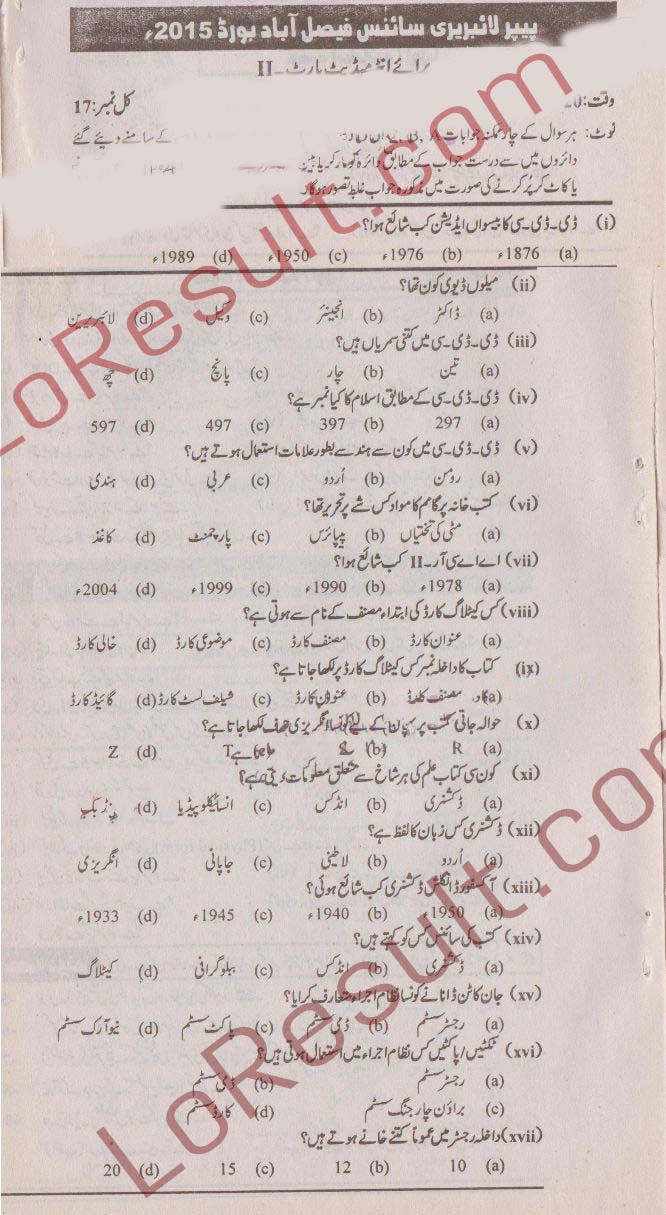 پیپر لائبریری سائنس فیصل آباد بورڈ 2015ء
برائے انٹرمیڈیٹ پارٹ۔II
وقت: کل نمبر: 17
نوٹ: ہر سوال کے چار ممکنہ جوابات A, B, کے سامنے دیئے گئے
دائروں میں سے درست جواب کے مطابق دائرہ کو مارکر یا پین
یا کاٹ کر پُر کرنے کی صورت میں مذکورہ جواب غلط تصور ہوگا۔
(i) ڈی۔ڈی۔سی کا بیسواں ایڈیشن کب شائع ہوا؟
(a) 1876ء (b) 1976ء (c) 1950ء (d) 1989ء
(ii) میلوں ڈیوی کون تھا؟
(a) ڈاکٹر (b) انجینئر (c) وکیل (d) لائبریرین
(iii) ڈی۔ڈی۔سی میں کتنی سمریاں ہیں؟
(a) تین (b) چار (c) پانچ (d) چھ
(iv) ڈی۔ڈی۔سی کے مطابق اسلام کا کیا نمبر ہے؟
(a) 297 (b) 397 (c) 497 (d) 597
(v) ڈی۔ڈی۔سی میں کون سے ہندسے بطور علامات استعمال ہوتے ہیں؟
(a) رومن (b) اُردو (c) عربی (d) ہندی
(vi) کتب خانہ پرگامم کا مواد کس شے پر تحریر تھا؟
(a) مٹی کی تختیاں (b) پیپائرس (c) پارچمنٹ (d) کاغذ
(vii) اے اے سی آر۔II کب شائع ہوا؟
(a) 1978ء (b) 1990ء (c) 1999ء (d) 2004ء
(viii) کس کیٹلاگ کارڈ کی ابتداء مصنف کے نام سے ہوتی ہے؟
(a) عنوان کارڈ (b) مصنف کارڈ (c) موضوعی کارڈ (d) خالی کارڈ
(ix) کتاب کا داخلہ نمبر کس کیٹلاگ کارڈ پر لکھا جاتا ہے؟
(a) مصنف کارڈ (b) عنوان کارڈ (c) شیلف لسٹ کارڈ (d) گائیڈ کارڈ
(x) حوالہ جاتی کتب پر پہچان کے لیے کونسا انگریزی حرف لکھا جاتا ہے؟
(a) R (b) (c) T (d) Z
(xi) کون سی کتاب علم کی ہر شاخ سے متعلق معلومات دیتی ہے؟
(a) ڈکشنری (b) انڈکس (c) انسائیکلوپیڈیا (d)
(xii) ڈکشنری کس زبان کا لفظ ہے؟
(a) اُردو (b) لاطینی (c) جاپانی (d) انگریزی
(xiii) آکسفورڈ انگلش ڈکشنری کب شائع ہوئی؟
(a) 1950ء (b) 1940ء (c) 1945ء (d) 1933ء
(xiv) کتب کی سائنس کس کو کہتے ہیں؟
(a) ڈکشنری (b) انڈکس (c) ببلوگرافی (d) کیٹلاگ
(xv) جان کاٹن ڈانا نے کونسا نظام اجراء متعارف کرایا؟
(a) رجسٹر سسٹم (b) ڈمی سسٹم (c) پاکٹ سسٹم (d) نیو آرک سسٹم
(xvi) ٹکٹیں/پاکٹیں کس نظام اجراء میں استعمال ہوتی ہیں؟
(a) رجسٹر سسٹم (b) ڈمی سسٹم
(c) براؤن چارجنگ سسٹم (d) کارڈ سسٹم
(xvii) داخلہ رجسٹر میں عموماً کتنے خانے ہوتے ہیں؟
(a) 10 (b) 12 (c) 15 (d) 20
LoResult.com
LoResult.com